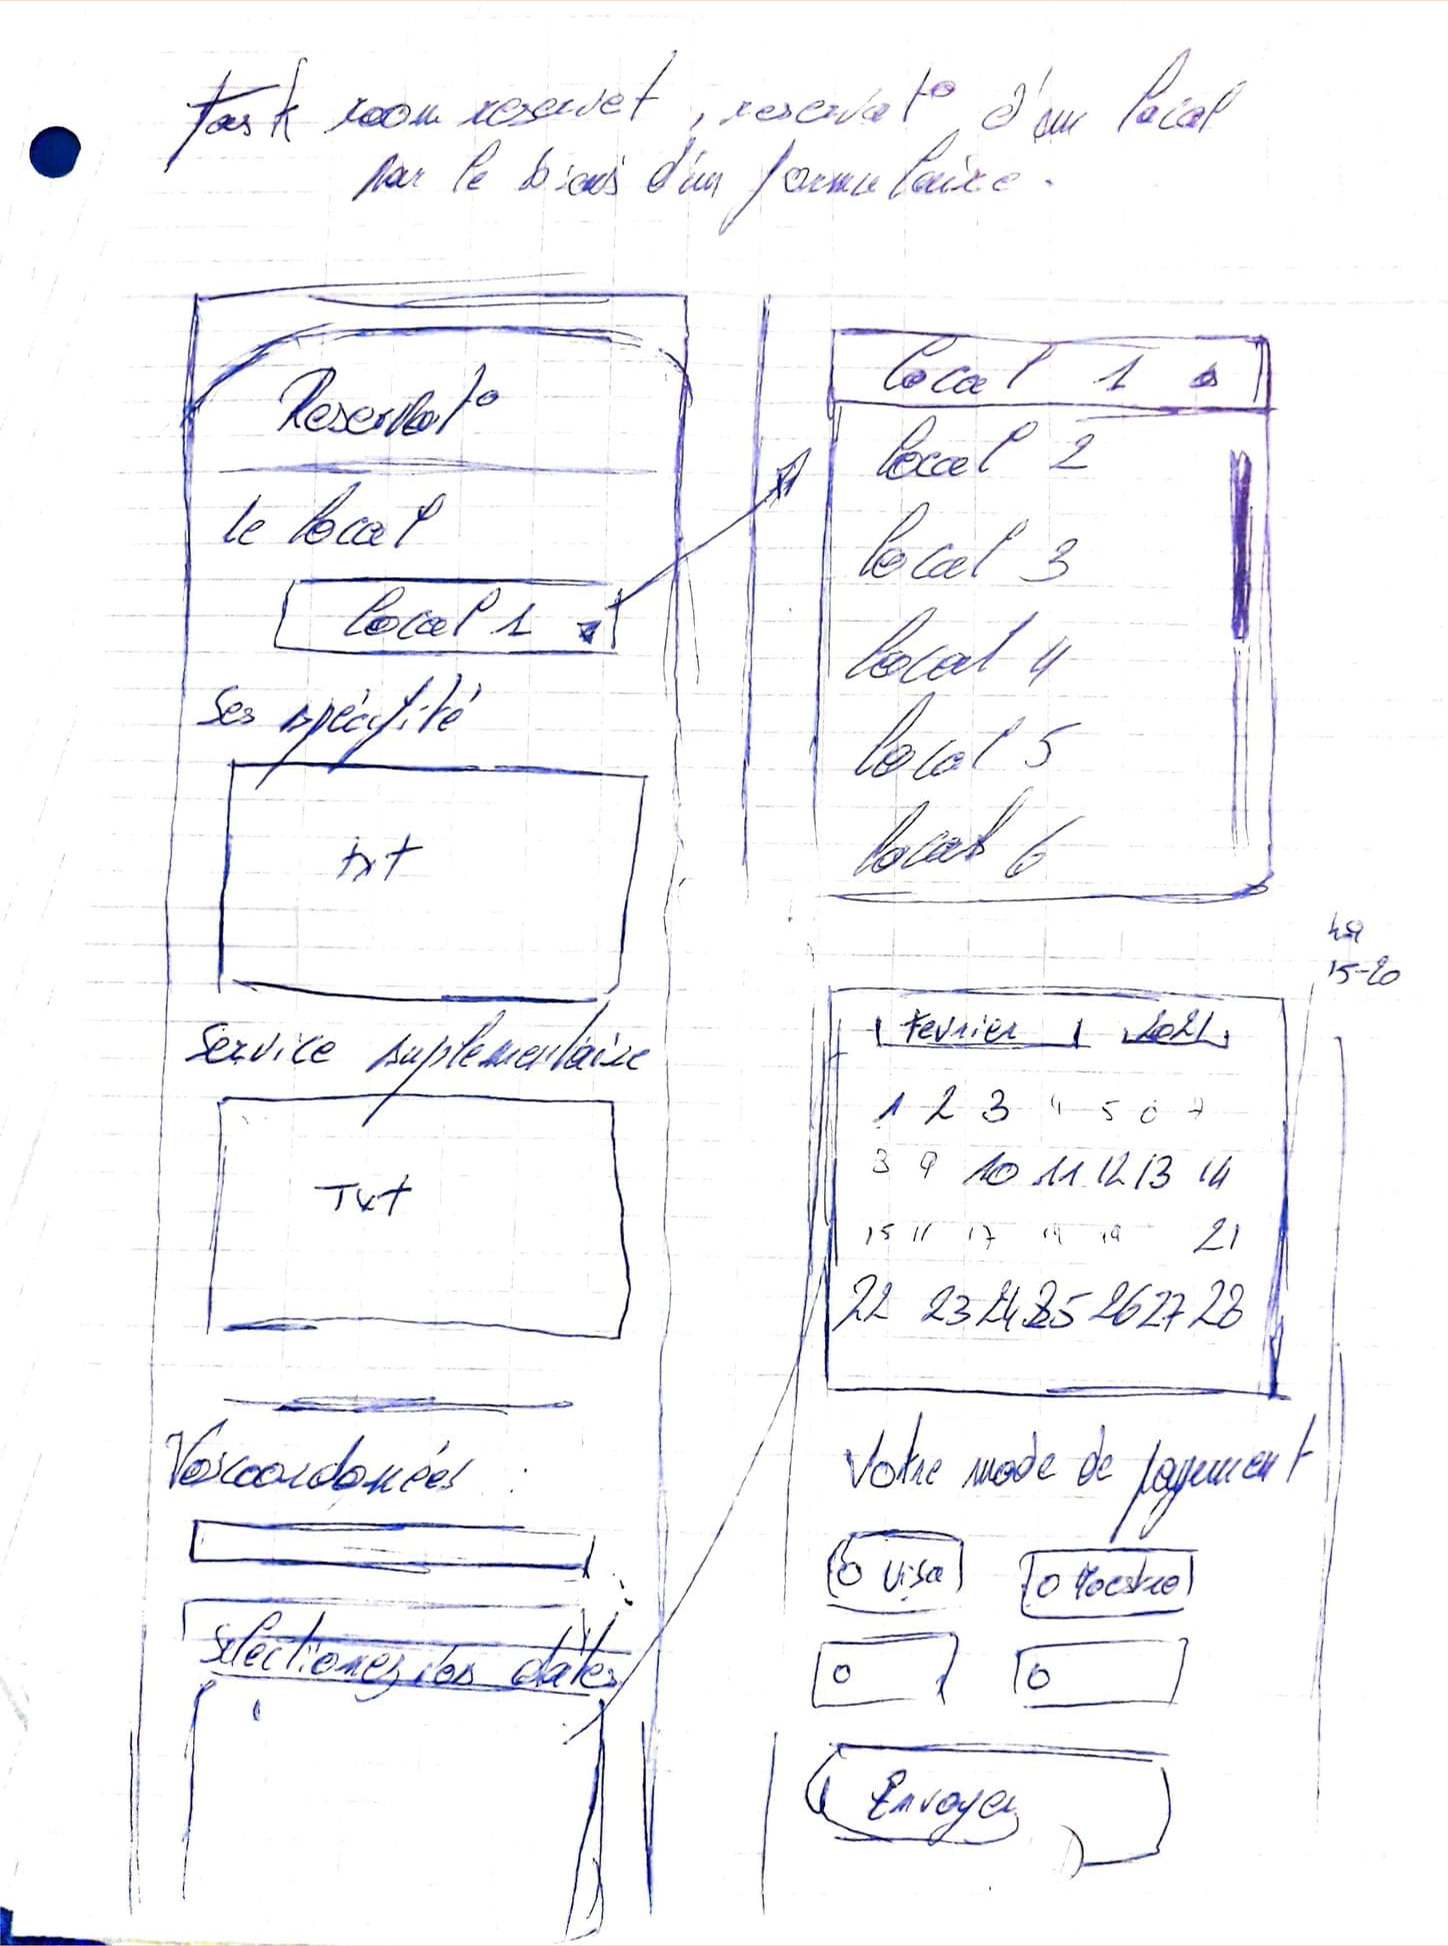 Task room reservet, reservat° d'un local
par le biais d'un formulaire.
Reservat°
le local
local 1
Ses spécifité
txt
Service suplementaire
Txt
Vos coordonées :
Sélectionez vos dates
local 1
local 2
local 3
local 4
local 5
local 6
15-20
Fevrier 2021
1 2 3 4 5 6 7
8 9 10 11 12 13 14
15 17 19 21
22 23 24 25 26 27 28
Votre mode de payement
Visa Maestro
Envoyer